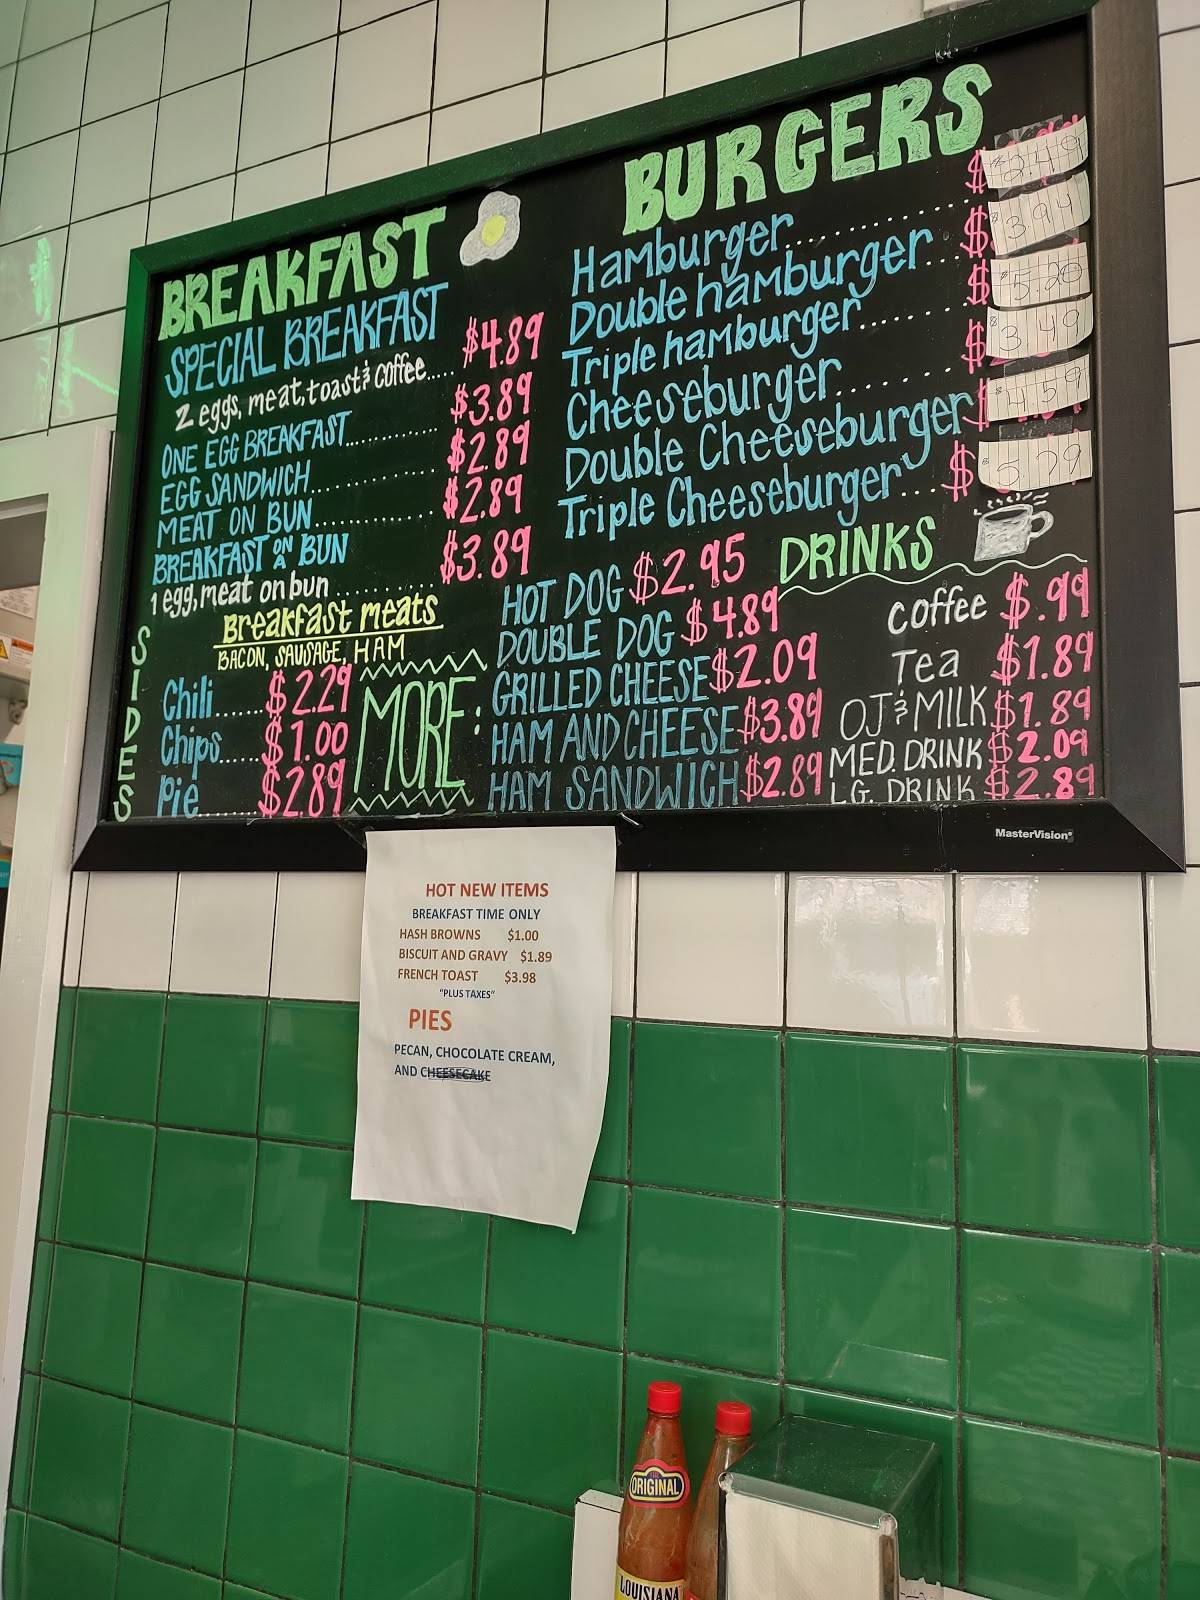 BREAKFAST
SPECIAL BREAKFAST
2 eggs, meat, toast & coffee..... $4.89
ONE EGG BREAKFAST............. $3.89
EGG SANDWICH............... $2.89
MEAT ON BUN.............. $2.89
BREAKFAST ON A BUN
1 egg, meat on bun.......... $3.89
Breakfast meats
BACON, SAUSAGE, HAM
SIDES
Chili...... $2.29
Chips..... $1.00
Pie........ $2.89
BURGERS
Hamburger............... $2.49
Double hamburger... $3.94
Triple hamburger....... $5.20
Cheeseburger........ $3.49
Double Cheeseburger $4.59
Triple Cheeseburger... $5.79
MORE:
HOT DOG $2.95
DOUBLE DOG $4.89
GRILLED CHEESE $2.09
HAM AND CHEESE $3.89
HAM SANDWICH $2.89
DRINKS
Coffee $.99
Tea $1.89
OJ & MILK $1.89
MED. DRINK $2.09
LG. DRINK $2.89
MasterVision
HOT NEW ITEMS
BREAKFAST TIME ONLY
HASH BROWNS $1.00
BISCUIT AND GRAVY $1.89
FRENCH TOAST $3.98
"PLUS TAXES"
PIES
PECAN, CHOCOLATE CREAM,
AND CHEESECAKE
ORIGINAL
LOUISIANA